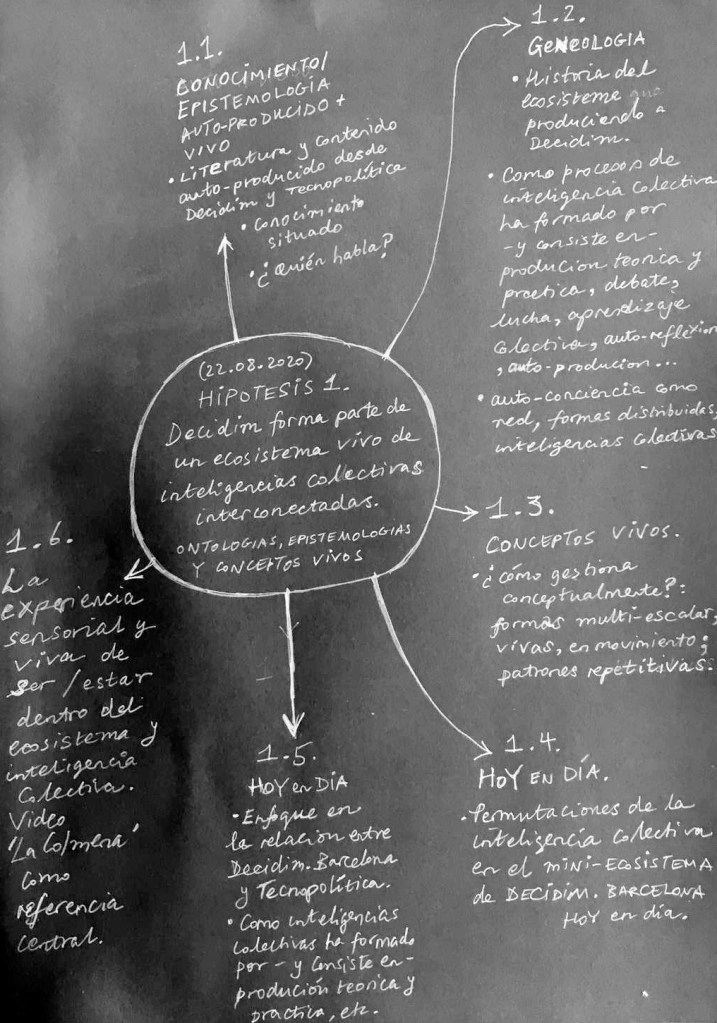 (22.08.2020)
HIPOTESIS 1.
Decidim forma parte de
un ecosistema vivo de
inteligencias colectivas
interconectadas.
ONTOLOGIAS, EPISTEMOLOGIAS
Y CONCEPTOS VIVOS
1.1.
CONOCIMIENTO/
EPISTEMOLOGÍA
AUTO-PRODUCIDO +
VIVO
• Literatura y contenido
auto-producido desde
Decidim y Tecnopolítica
• Conocimiento
situado
• ¿Quién habla?
1.2.
GENEOLOGIA
• Historia del
ecosistema que
produciendo a
Decidim.
• Como procesos de
inteligencia colectiva
ha formado por
-y consiste en-
produción teorica y
practica, debate,
lucha, aprendizaje
colectiva, auto-reflexion
, auto-producion...
• auto-conciencia como
red, formas distribuidas,
inteligencias colectivas
1.3.
CONCEPTOS VIVOS.
• ¿cómo gestiona
conceptualmente?:
formas multi-escalar,
vivas, en movimiento;
patrones repetitivas.
1.4.
HOY EN DÍA.
• Permutaciones de la
inteligencia colectiva
en el MINI-ECOSISTEMA
de DECIDIM.BARCELONA
HOY en día.
1.5.
HOY en DÍA
• Enfoque en
la relación entre
Decidim.Barcelona
y Tecnopolítica.
• Como inteligencias
colectivas ha formado
por - y consiste en -
produción teorica y
practica, etc.
1.6.
La
experiencia
sensorial y
viva de
ser/estar
dentro del
ecosistema y
inteligencia
colectiva.
Video
'La Colmena'
como
referencia
central.